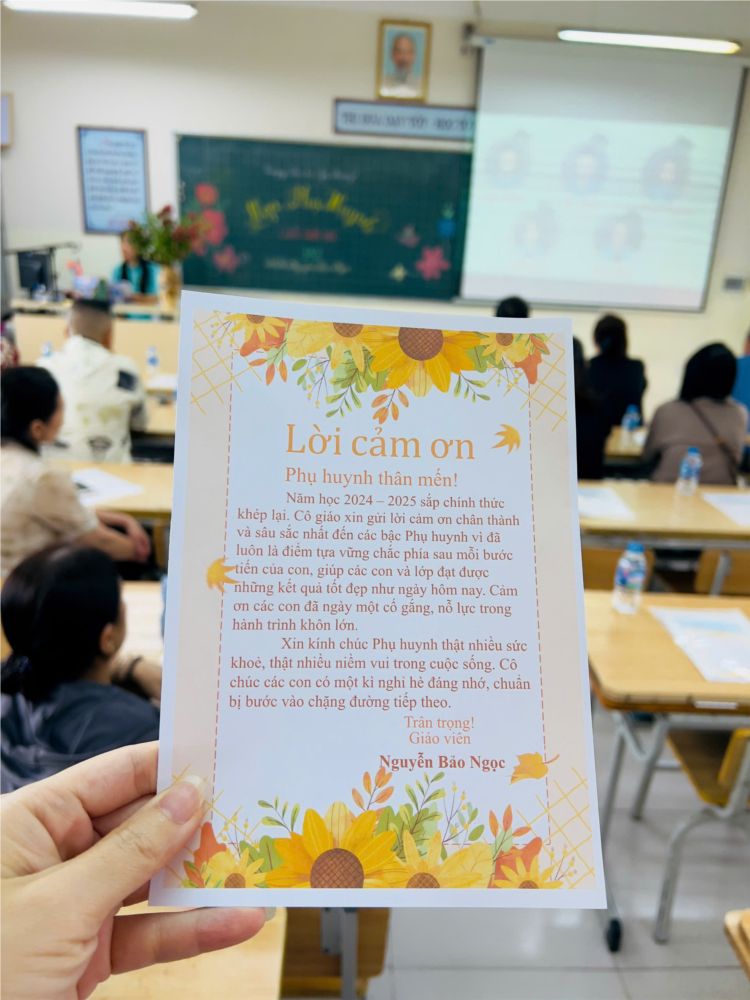 Họp Phụ Huynh
Lời cảm ơn
Phụ huynh thân mến!
Năm học 2024 – 2025 sắp chính thức
khép lại. Cô giáo xin gửi lời cảm ơn chân thành
và sâu sắc nhất đến các bậc Phụ huynh vì đã
luôn là điểm tựa vững chắc phía sau mỗi bước
tiến của con, giúp các con và lớp đạt được
những kết quả tốt đẹp như ngày hôm nay. Cảm
ơn các con đã ngày một cố gắng, nỗ lực trong
hành trình khôn lớn.
Xin kính chúc Phụ huynh thật nhiều sức
khoẻ, thật nhiều niềm vui trong cuộc sống. Cô
chúc các con có một kì nghỉ hè đáng nhớ, chuẩn
bị bước vào chặng đường tiếp theo.
Trân trọng!
Giáo viên
Nguyễn Bảo Ngọc